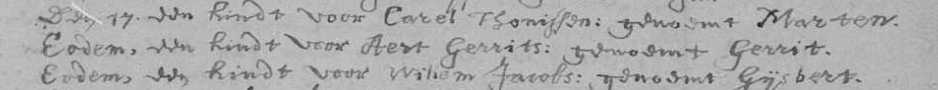 Den 17. een kindt voor Carel Thonissen: genoemt Marten.
Eodem, een kindt voor Aert Gerrits: genoemt Gerrit.
Eodem, een kindt voor Willem Jacobs: genoemt Gijsbert.